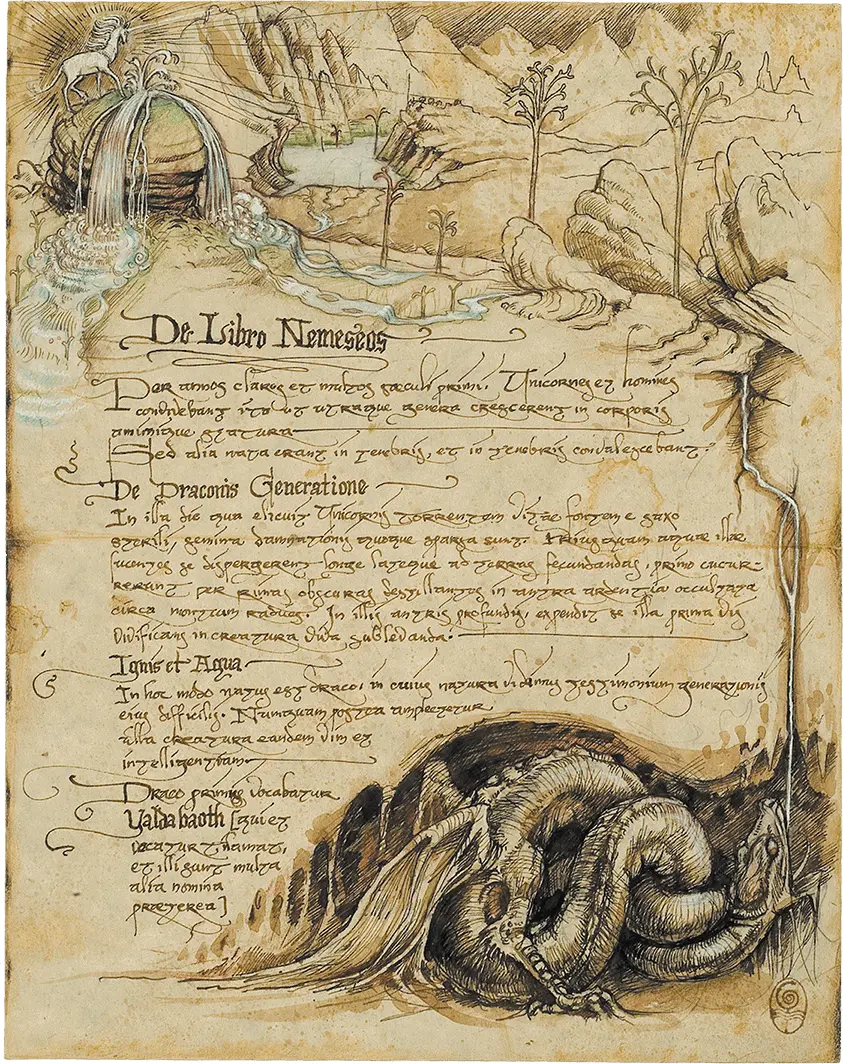 De Libro Nemeseos
Per annos claros et multos sæculi primi, Unicornes et homines
convivebant ita ut utraque genera crescerent in corporis
animique statura
Sed alia nata erant in tenebris, et in tenebris convalescebant.
De Draconis Generatione
In illa die qua elicuit Unicornis torrentem vitæ fontem e saxo
sterili, semina damnationis quoque sparsa sunt. Priusquam aquæ illæ
se dispergerent longe lateque ad terras fecundandas, primo cucur-
rerunt per rimas obscuras destillantes in antra ardentia occultata
circa montium radices. In illis antris profundis, expendit se illa prima vis
vivificans in creatura diva sublevanda.
Ignis et Aqua
In hoc modo natus est draco, in cuius natura vidimus testimonium generationis
eius difficilis. Numquam postea amplectetur
ulla creatura eandem vim et
intelligentiam.
Draco primus vocabatur
Yaldabaoth [qui et
vocatur
et illi sunt multa
alia nomina
præterea]